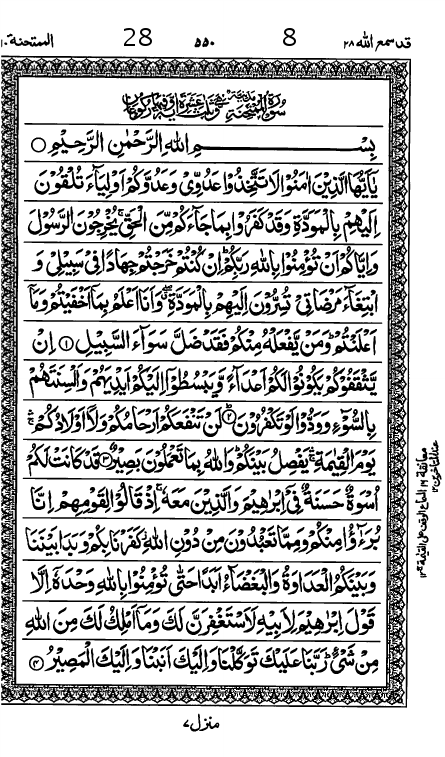 قد سمع الله ٢٨ 8 ٥٥٠ 28 الممتحنة ٦٠
سورة الممتحنة مدنية وهي ثلث عشرة اية وفيها ركوعان
بِسْمِ اللهِ الرَّحْمٰنِ الرَّحِيْمِ ○
يٰۤاَيُّهَا الَّذِيْنَ اٰمَنُوْا لَا تَتَّخِذُوْا عَدُوِّىْ وَعَدُوَّكُمْ اَوْلِيَآءَ تُلْقُوْنَ
اِلَيْهِمْ بِالْمَوَدَّةِ وَقَدْ كَفَرُوْا بِمَا جَآءَكُمْ مِّنَ الْحَقِّ ۚ يُخْرِجُوْنَ الرَّسُوْلَ
وَاِيَّاكُمْ اَنْ تُؤْمِنُوْا بِاللهِ رَبِّكُمْ ؕ اِنْ كُنْتُمْ خَرَجْتُمْ جِهَادًا فِىْ سَبِيْلِىْ وَ
ابْتِغَآءَ مَرْضَاتِىْ تُسِرُّوْنَ اِلَيْهِمْ بِالْمَوَدَّةِ ۖ وَاَنَا اَعْلَمُ بِمَاۤ اَخْفَيْتُمْ وَمَاۤ
اَعْلَنْتُمْ ؕ وَمَنْ يَّفْعَلْهُ مِنْكُمْ فَقَدْ ضَلَّ سَوَآءَ السَّبِيْلِ ۝١ اِنْ
يَّثْقَفُوْكُمْ يَكُوْنُوْا لَكُمْ اَعْدَآءً وَّيَبْسُطُوْۤا اِلَيْكُمْ اَيْدِيَهُمْ وَاَلْسِنَتَهُمْ
بِالسُّوْٓءِ وَوَدُّوْا لَوْ تَكْفُرُوْنَ ۝٢ لَنْ تَنْفَعَكُمْ اَرْحَامُكُمْ وَلَاۤ اَوْلَادُكُمْ ۛۚ
يَوْمَ الْقِيٰمَةِ ۛۚ يَفْصِلُ بَيْنَكُمْ ؕ وَاللهُ بِمَا تَعْمَلُوْنَ بَصِيْرٌ ۝٣ قَدْ كَانَتْ لَكُمْ
اُسْوَةٌ حَسَنَةٌ فِىْۤ اِبْرٰهِيْمَ وَالَّذِيْنَ مَعَهٗ ۚ اِذْ قَالُوْا لِقَوْمِهِمْ اِنَّا
بُرَءٰٓؤُا مِنْكُمْ وَمِمَّا تَعْبُدُوْنَ مِنْ دُوْنِ اللهِ ؗ كَفَرْنَا بِكُمْ وَبَدَا بَيْنَنَا
وَبَيْنَكُمُ الْعَدَاوَةُ وَالْبَغْضَآءُ اَبَدًا حَتّٰى تُؤْمِنُوْا بِاللهِ وَحْدَهٗۤ اِلَّا
قَوْلَ اِبْرٰهِيْمَ لِاَبِيْهِ لَاَسْتَغْفِرَنَّ لَكَ وَمَاۤ اَمْلِكُ لَكَ مِنَ اللهِ
مِنْ شَىْءٍ ؕ رَبَّنَا عَلَيْكَ تَوَكَّلْنَا وَاِلَيْكَ اَنَبْنَا وَاِلَيْكَ الْمَصِيْرُ ۝٤
منزل ٧